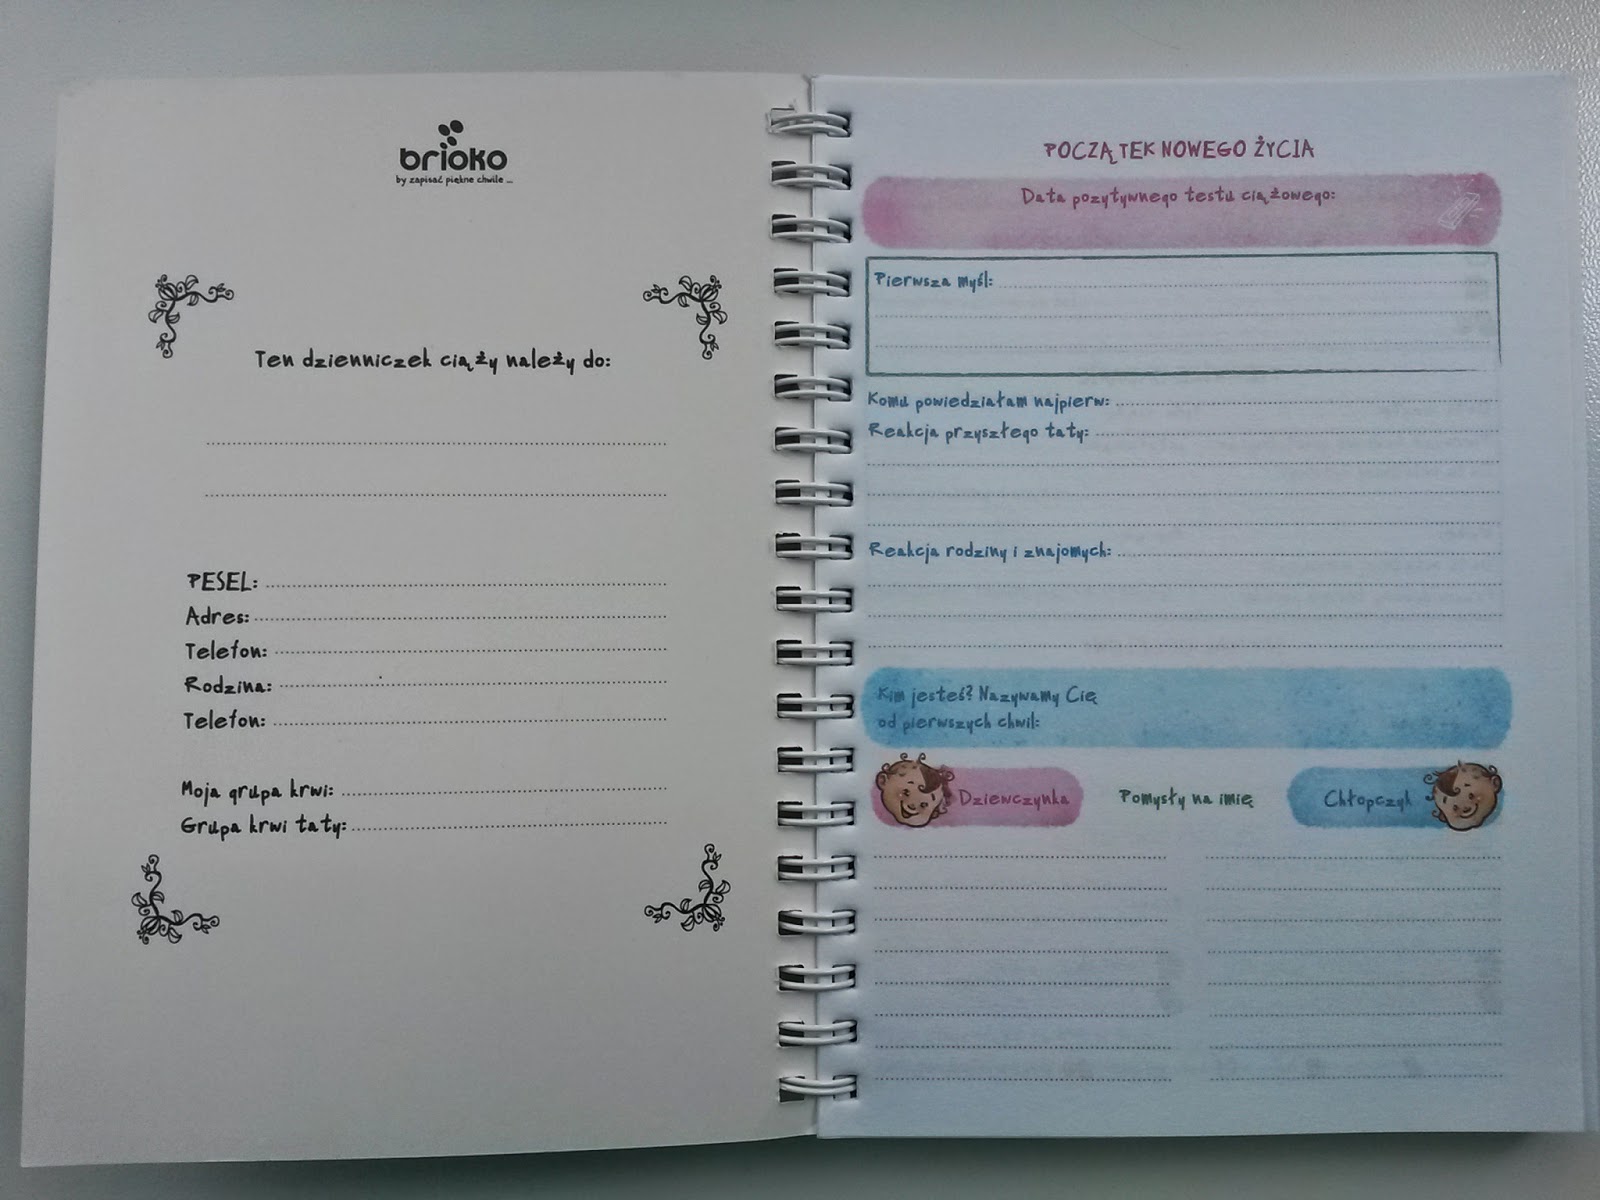 brioko
by zapisać piękne chwile ...
Ten dzienniczek ciąży należy do:
PESEL:
Adres:
Telefon:
Rodzina:
Telefon:
Moja grupa krwi:
Grupa krwi taty:
POCZĄTEK NOWEGO ŻYCIA
Data pozytywnego testu ciążowego:
Pierwsza myśl:
Komu powiedziałam najpierw:
Reakcja przyszłego taty:
Reakcja rodziny i znajomych:
Kim jesteś? Nazywamy Cię
od pierwszych chwil:
Dziewczynka
Pomysły na imię
Chłopczyk